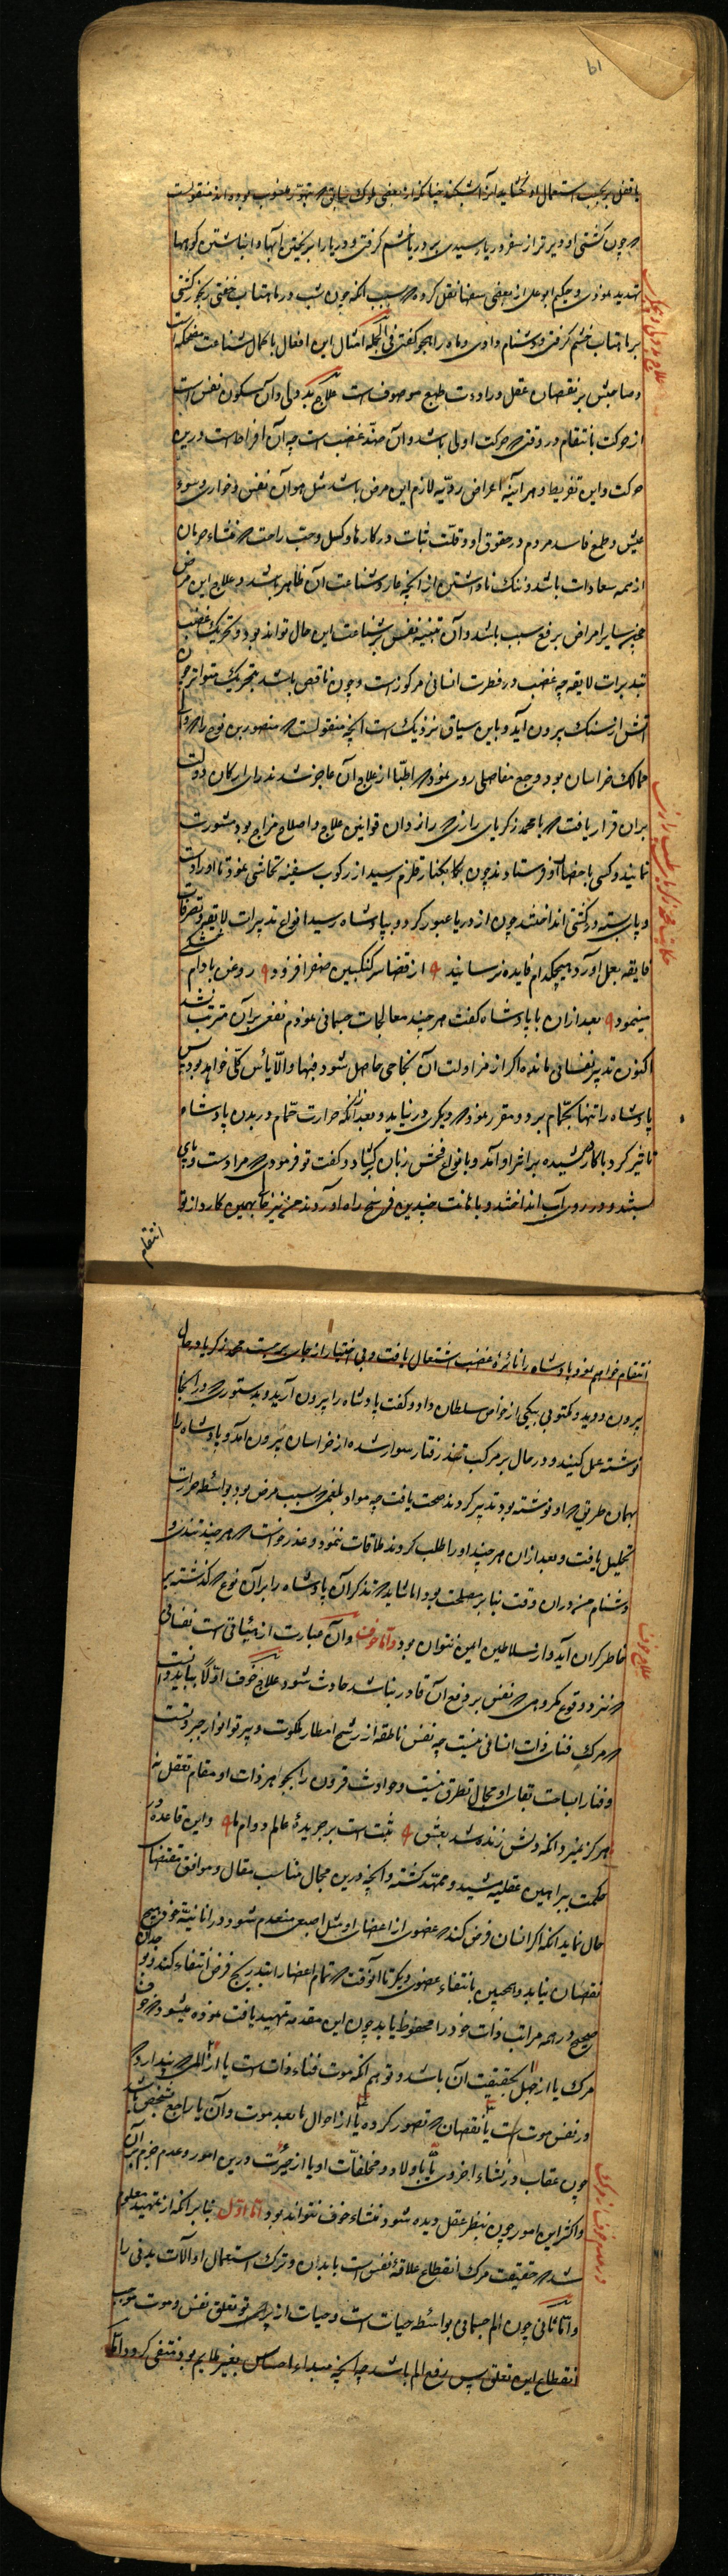 یا قفل بر حسب استعمال او نگشاید آنرا بشکند چنانکه از بعضی ملوک سابق که بتهور منسوب بوده اند منقولست
که چون کشتی او دیرتر از سفر دریا رسیدی بر دریا خشم گرفتی و دریا را بریختن آبها و انباشتن کوهها
تهدید نمودی و حکیم ابو علی از بعضی سفها نقل کرده که بسبب آنکه چون شب در ماهتاب خفتی رنجور گشتی
بر ماهتاب خشم گرفتی و دشنام دادی و ماه را هجو گفتی فی الجمله امثال این افعال با کمال شناعت مضحکه است
و صاحبش بر نقصان عقل و رداءت طبع موصوف است علاج بددلی و آن سکون نفس است
از حرکت بانتقام در وقتی که حرکت اولی باشد و آن ضد غضب است چه آن افراط است درین
حرکت و این تفریط و هر آینه اعراض ردیه لازم این مرض باشد مثل هوان نفس و خواری و سوء
عیش و طمع فاسد مردم در حقوق او و قلت ثبات در کارها و کسل و حب راحت که منشاء حرمان
از همه سعادات باشد و ننگ ناداشتن از انچه عار و شناعت آن ظاهر باشد و علاج این مرض
همچو سایر امراض برفع سبب باشد و آن تنبیه نفس بر شناعت این حال تواند بود و تحریک غضب
بتدبیرات لایقه چه غضب در فطرت انسانی مرکوز است و چون ناقص باشد بتحریک متواتر چون
آتش از سنگ بیرون آید و باین سیاق نزدیک است آنچه منقولست که منصور بن نوح را که والی
ممالک خراسان بود وجع مفاصلی روی نمود که اطبا از علاج آن عاجز شدند رای ارکان دولت
بران قرار یافت که با محمد زکریای رازی که رازدان قوانین علاج و اصلاح مزاج بود مشورت
نمایند و کسی باحضار او فرستادند چون بکنار قلزم رسید از رکوب سفینه تحاشی نمود تا او را دست
و پای بسته در کشتی انداختند چون از دریا عبور کرد و بپادشاه رسید انواع تدبیرات لایقه و تصرفات
فایقه بعمل آورد و هیچکدام فایده نرسانید از قضا سرکنگبین صفرا فزود روغن بادام خشکی
مینمود بعد ازان با پادشاه گفت هر چند معالجات جسمانی نمودم نفعی بران مترتب نشد
اکنون تدبیر نفسانی مانده اگر از مزاولت آن نجاحی حاصل شود فبها والا یأس کلی خواهد بود پس
پادشاه را تنها بحمام برد و مقرر نمود که دیگری در نیاید و بعد از آنکه حرارت حمام در بدن پادشاه
تاثیر کرد با کارد کشیده برابر او آمد و بانواع فحش زبان گشاد و گفت تو فرمودی که مرا دست و پای
ببندند و در روی آب اندازند و باهانت چندین فرسخ راه آوردند من نیز بهمین کارد از تو
انتقام
انتقام خواهم نمود پادشاه را نائرهٔ غضب اشتعال یافت و بی اختیار از جای برجست محمد زکریا در حال
بیرون دوید و مکتوبی بیکی از خواص سلطان داد و گفت پادشاه را بیرون آرید و بدستوری که در آنجا
نوشته عمل کنید و در حال بر مرکب تندرفتار سوار شده از خراسان بیرون آمد و پادشاه را
بهمان طریق که او نوشته بود تدبیر کردند صحت یافت چه مواد بلغمی که سبب مرض بود بواسطه حرارت
تحلیل یافت و بعد ازان هر چند او را طلب کردند ملاقات ننمود و عذر خواست که هر چند تندی و
دشنام من دران وقت بنابر مصلحت بود اما شاید که تذکر آن پادشاه را بران نوع که گذشته بر
خاطر گران آید و از سلاطین ایمن نتوان بود و اما خوف و آن عبارت از هیئاتی است نفسانی
که نزد وقوع مکروهی که نفس بر دفع آن قادر نباشد حادث شود علاج خوف اولا بباید دانست
که مرگ فنای ذات انسانی نیست چه نفس ناطقه از رشح امطار ملکوت و پرتو انوار جبروتست
و فنا را بساحت بقای او مجال تطرق نیست و حوادث قرون را بجواهر ذات او مقام تعقل نه
هرگز نمیرد آنکه دلش زنده شد بعشق ثبت است بر جریدهٔ عالم دوام ما و این قاعده در
حکمت ببراهین عقلیه مشید و ممهد گشته و انچه درین مجال مناسب مقال و موافق مقتضای
حال نماید آنکه اگر انسان فرض کند که عضوی از اعضای او مثل اصبعی منعدم شود در انانیت خود هیچ
نقصان نیابد و همچنین بانتفاء عضوی دیگر تا آنوقت که تمام اعضا را بتدریج فرض انتفاء کند وجدان
صحیح در همه مراتب ذات خود را محفوظ یابد چون این مقدمه تمهید یافت نموده میشود که خوف
مرگ یا از جهل بحقیقت آن باشد و توهم آنکه موت فناء ذات است یا از المی که پندارد که
در نفس موت است یا نقصان که تصور کرده یا از احوال ما بعد موت و آن یا راجع بشخص باشد
چون عقاب در نشاء اخروی یا باولاد و مخلفات او یا از حیرت درین امور و عدم جزم بر آن
و اکثر این امور چون بنظر عقل دیده شود منشاء خوف نتواند بود اما اول بنابر آنکه از تمهید معلوم
شد که حقیقت مرگ انقطاع علاقهٔ نفس است با بدان و ترک استعمال او آلات بدنی را
و اما ثانی چون الم جسمانی بواسطه حیات است و حیات از پرتو تعلق نفس و موت موجب
انقطاع این تعلق پس رفع الم باشد چه انچه مبداء احساس بغیر ملایم بود منتفی گردد و اما
علاج بددلی
حکایت محمد زکریا طبیب رازی
علاج خوف
در عدم خوف از مرگ